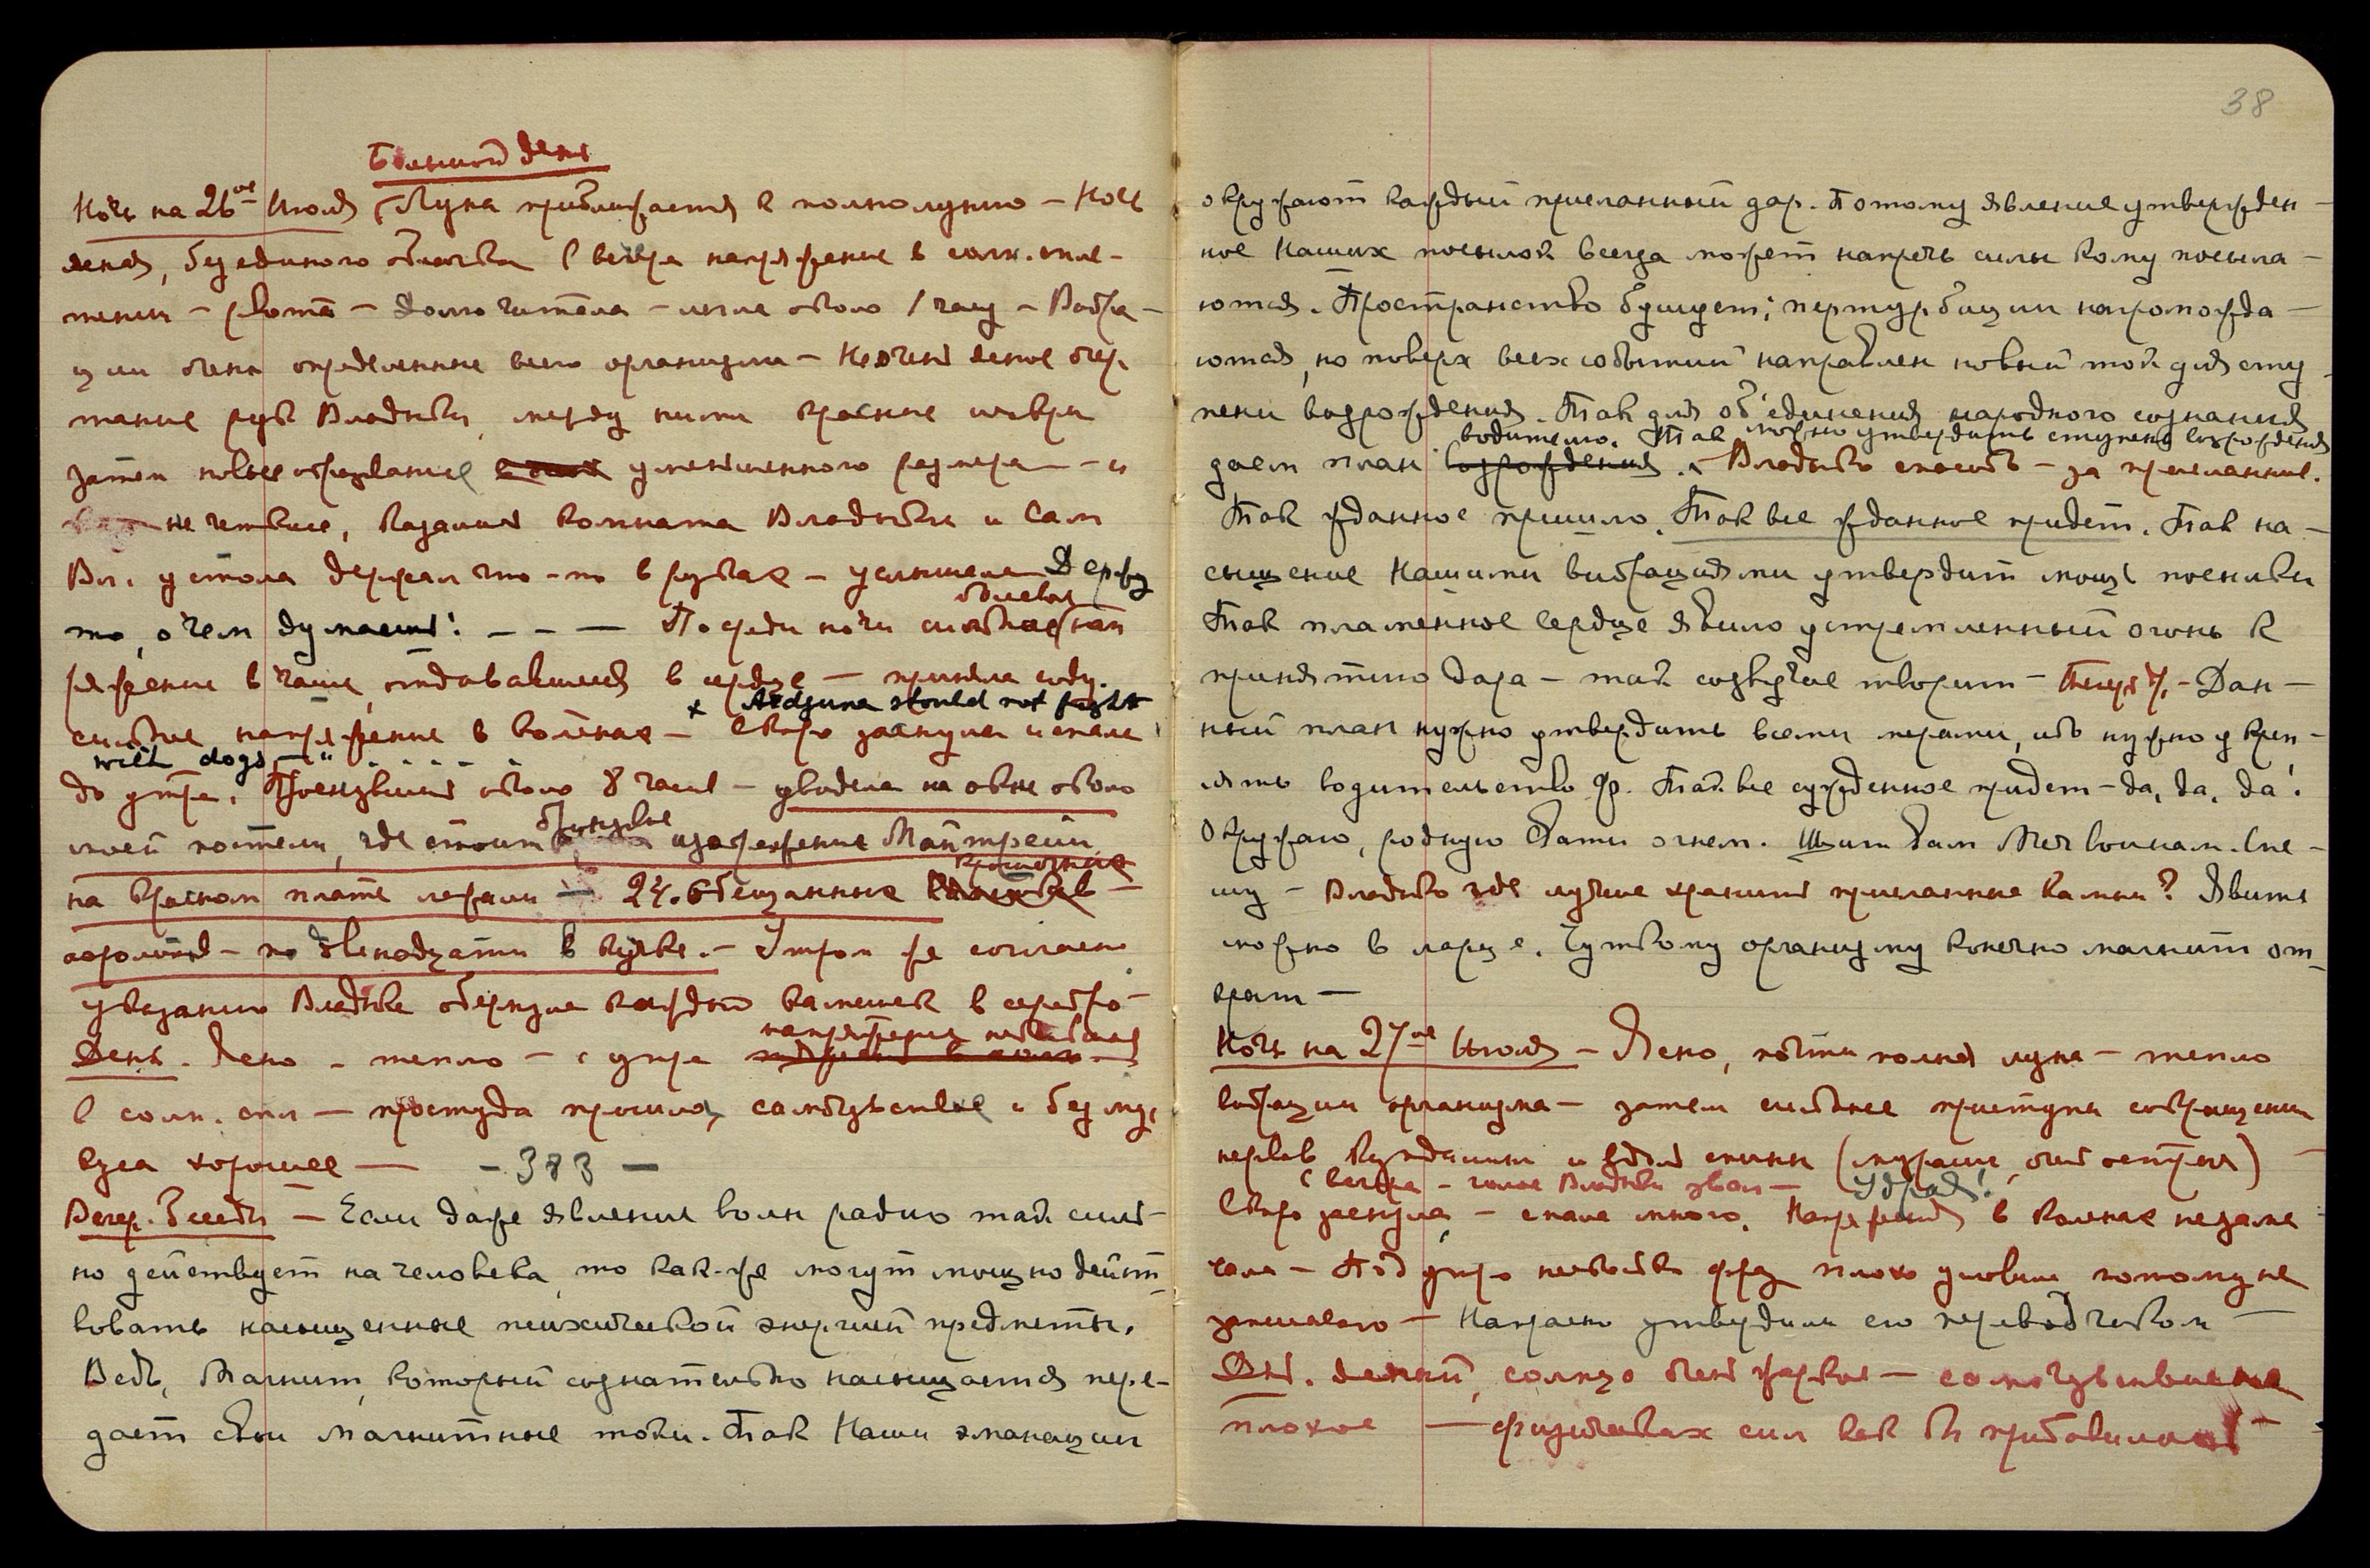 38
Большой день
Ночь на 26ое Июля (Луна приближается к полнолунию – Ночь
ясная, без единого облачка С вечера напряжение в солн. спле-
тении – рвота – Долго читала – легла около 1 часу – Вибра-
ции очень определенные всего организма – Не очень ясное очер
тание рук Владыки, между ними красные искры
затем новое образование уменьшенного размера – и
не четкие, казалась комната Владыки и Сам
Вл. у стола держал что-то в руках – услышала Держу
то, о чем думаешь! – – – Посреди ночи сильное нап
ряжение в чаше, отдававшееся в сердце – приняла соду.
x Ardjuna should not fight
сильное напряжение в коленах – Скоро заснула и спала
with dogs – " . . . . .
до утра. Проснувшись около 8 часов – увидела на окне около
моей постели, где стоит бронзовое изображение Майтрейи
на красном плате лежали – 24. обещанные крошечные
– по двенадцати в кучке. – Утром же согласно
указанию Владыки обернула каждый камешек в серебро –
День. Ясно – тепло – с утра напряжения небольшая
в солн. спл – простуда прошла, самочувствие с безму-
кула хорошее – – 383 –
Вечер. Беседы – Если даже явление волн радио так силь-
но действует на человека, то как-же могут мощно дейст-
вовать насыщенные психической энергией предметы.
Ведь, Магнит, который сознательно насыщается пере-
дает свои магнитные токи. Так Наши эманации
окружают каждый присланный дар. Потому явление утвержден-
ное Наших посылок всегда может напречь силы кому посыла-
ются. Пространство бушует; пертурбации нагроможда-
ются, но поверх всех событий направлен новый ток для сту
пени возрождения. Так для об'единения народного сознания
водителю. Так можно утвердить ступень возрождения
даем план возрождения. Владыко спасибо – за присланные.
Так жданное пришло. Так все жданное придет. Так на-
сыщение Нашими вибрациями утвердит мощь посылки
Так пламенное сердце явило устремленный огонь к
принятию дара – так созвучие творит – – Дан-
ный план нужно утвердить всеми мерами, ибо нужно укреп-
лять водительство Ф. Так все сужденное придет – да, да, да!
Окружаю, родную Свати огнем. Щит дам Меч воинам. Спе-
шу – Владыко где лучше хранить присланные камни? Явить
можно в ларце. Чуткому организму конечно магнит от-
крыт –
Ночь на 27ое Июля – Ясно, почти полная луна – тепло
вибрации организма – затем сильнее приступы сокращения
нервов Кундалини и вдоль спины (мураши, очень остры)
С вечера – голос Владыки звал –
Скоро заснула – спала много. Напряжения в коленах не заме
чала – Под утро несколько фраз плохо уловила потому не
записываю – Напрасно утвердили его переводчиком –
День. Ясный, солнце очень жаркое – самочувствие не
плохое – физических сил как бы прибавилось –